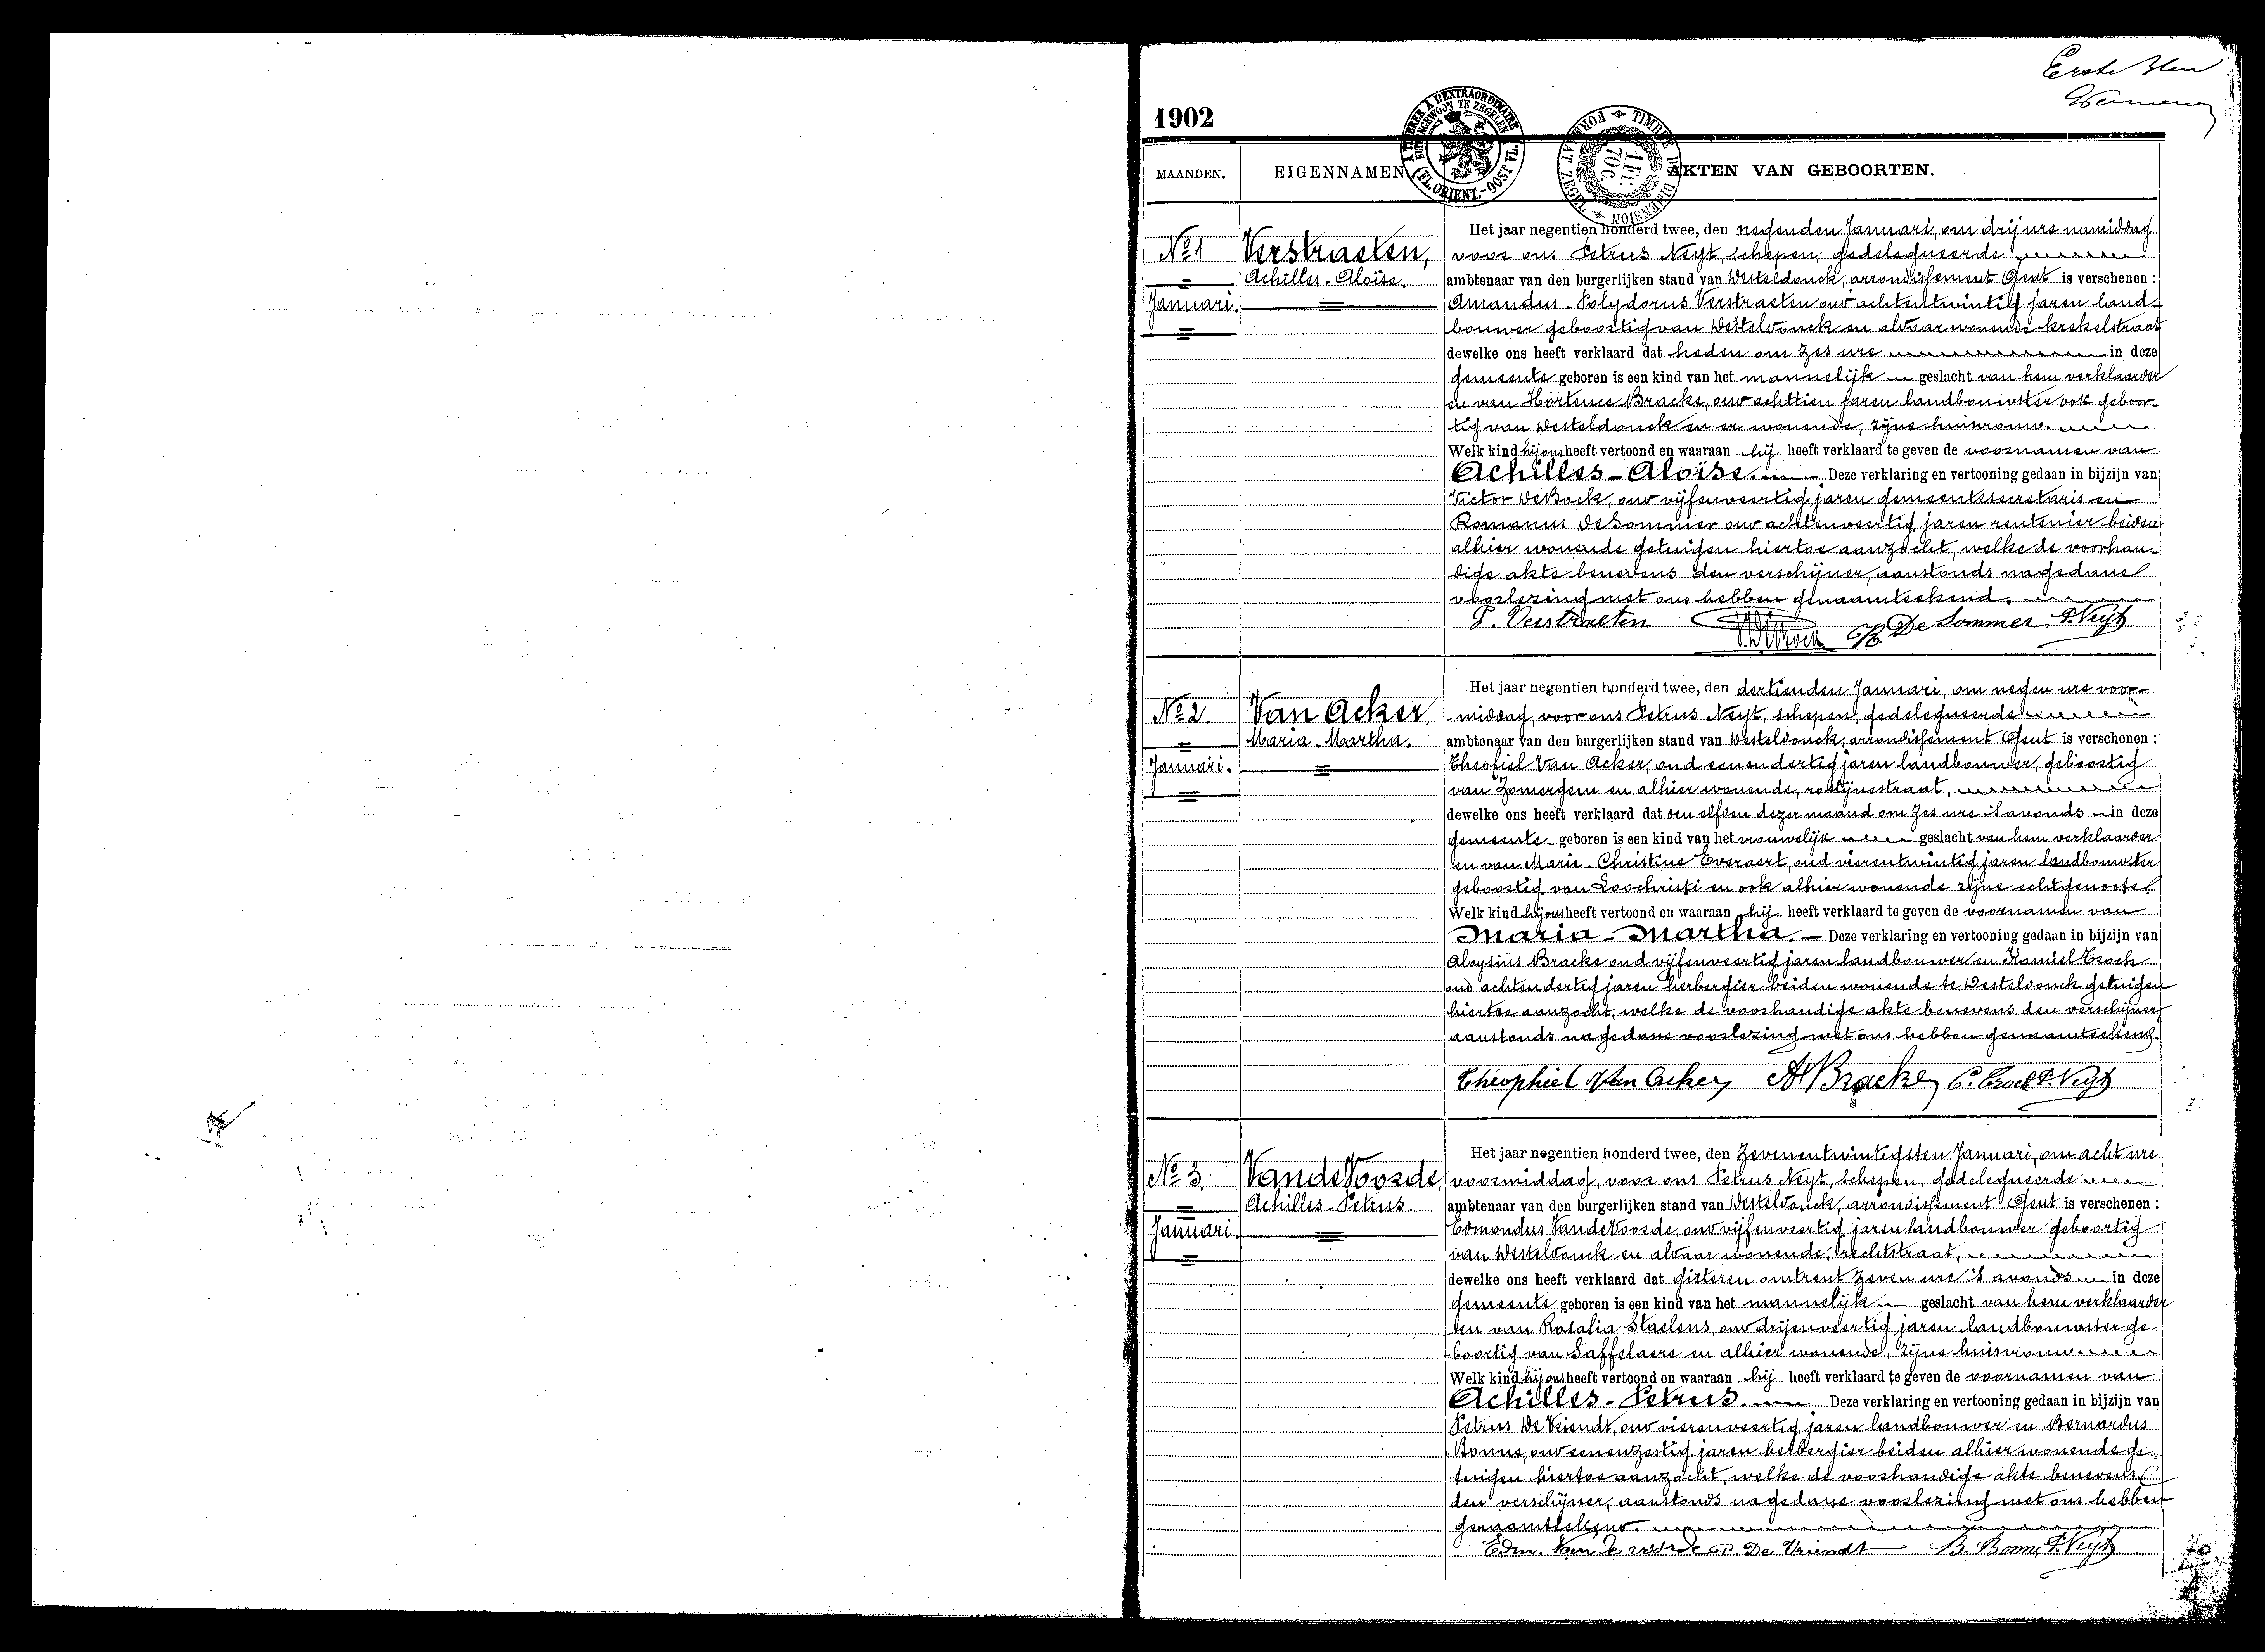 Erste
1902
A TIMBRER A L'EXTRAORDINAIRE
BUITENGEWOON TE ZEGELEN
(FL. ORIENT. - OOST VL.)
TIMBRE DE DIMENSION
FORMAAT ZEGEL
1 FR. 70 C.
MAANDEN. EIGENNAMEN AKTEN VAN GEBOORTEN.
Nº1
Januari.
Verstraeten,
Achilles-Aloïse.
Het jaar negentien honderd twee, den negenden Januari, om drij ure namiddag
voor ons Petrus Neyt, schepen, gedelegueerde
ambtenaar van den burgerlijken stand van Desteldonck, arrondissement Gent is verschenen :
Amandus-Polydorus Verstraeten oud achtentwintig jaren land-
bouwer geboortig van Desteldonck en aldaar wonende krekelstraat
dewelke ons heeft verklaard dat heden om zes ure in deze
gemeente geboren is een kind van het mannelijk geslacht van hem verklaarder
en van Hortence Bracke, oud achttien jaren landbouwster ook geboor-
tig van Desteldonck en er wonende, zijne huisvrouw.
Welk kind hij ons heeft vertoond en waaraan hij heeft verklaard te geven de voornamen van
Achilles-Aloïse. Deze verklaring en vertooning gedaan in bijzijn van
Victor DeBock, oud vijfenveertig jaren gemeentesecretaris en
Romanus DeSommer oud achtenveertig jaren rentenier beiden
alhier wonende getuigen hiertoe aanzocht, welke de voorhan-
dige akte benevens den verschijner, aanstonds na gedane
voorlezing met ons hebben genaamteekend.
P. Verstraeten De Bock De Sommer P. Neyt
Nº2.
Januari.
Van Acker
Maria-Martha.
Het jaar negentien honderd twee, den dertienden Januari, om negen ure voor-
middag, voor ons Petrus Neyt, schepen, gedelegueerde
ambtenaar van den burgerlijken stand van Desteldonck, arrondissement Gent is verschenen :
Theofiel Van Acker, oud eenendertig jaren landbouwer, geboortig
van Zomergem en alhier wonende, rostijnestraat,
dewelke ons heeft verklaard dat den elfden dezer maand om zes ure 's avonds in deze
gemeente geboren is een kind van het vrouwelijk geslacht van hem verklaarder
en van Marie-Christine Everaert, oud vierentwintig jaren landbouwster
geboortig van Loochristi en ook alhier wonende zijne echtgenoote.
Welk kind hij ons heeft vertoond en waaraan hij heeft verklaard te geven de voornamen van
Maria-Martha. Deze verklaring en vertooning gedaan in bijzijn van
Aloysius Bracke oud vijfenveertig jaren landbouwer en Kamiel
oud achtendertig jaren herbergier beiden wonende te Desteldonck getuigen
hiertoe aanzocht, welke de voorhandige akte benevens den verschijner,
aanstonds na gedane voorlezing met ons hebben genaamteekend.
Theophiel Van Acker, Al Bracke P. Neyt
Nº3.
Januari.
VandeVoorde,
Achilles-Petrus.
Het jaar negentien honderd twee, den zevenentwintigsten Januari, om acht ure
voormiddag, voor ons Petrus Neyt, schepen, gedelegueerde
ambtenaar van den burgerlijken stand van Desteldonck, arrondissement Gent is verschenen :
Edmondus VandeVoorde, oud vijfenveertig jaren landbouwer geboortig
van Desteldonck en aldaar wonende, rechtstraat,
dewelke ons heeft verklaard dat gisteren omtrent zeven ure 's avonds in deze
gemeente geboren is een kind van het mannelijk geslacht van hem verklaarder
en van Rosalia Staelens, oud drijenveertig jaren landbouwster ge-
boortig van Saffelaere en alhier wonende, zijne huisvrouw.
Welk kind hij ons heeft vertoond en waaraan hij heeft verklaard te geven de voornamen van
Achilles-Petrus. Deze verklaring en vertooning gedaan in bijzijn van
Petrus De Vriendt, oud vierenveertig jaren landbouwer en Bernardus
Bonne, oud eenenzestig jaren herbergier beiden alhier wonende ge-
tuigen hiertoe aanzocht, welke de voorhandige akte benevens
den verschijner, aanstonds na gedane voorlezing met ons hebben
genaamteekend.
Edm. Van de voorde De Vriendt B. Bonne P. Neyt